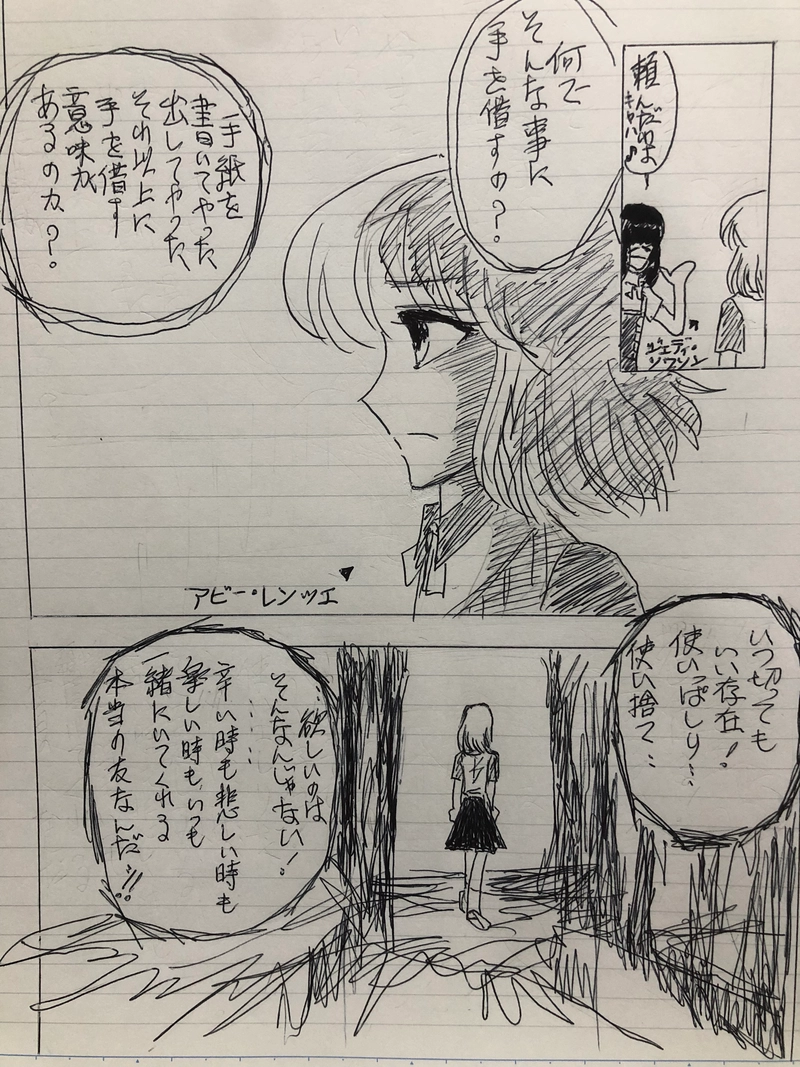 頼んだわよ
キャハハ♪
ジェディ・
ソワソン
何で
そんな事に
手を借すの?
手紙を
書いてやった
出してやった
それ以上に
手を借す
意味が
あるのか?
アビー・レンツエ
いつ切っても
いい存在!
使いっぱしり…
使い捨て…
…欲しいのは
そんなんじゃない!
……
辛い時も悲しい時も
楽しい時も、いつも
一緒にいてくれる
本当の友なんだ!!